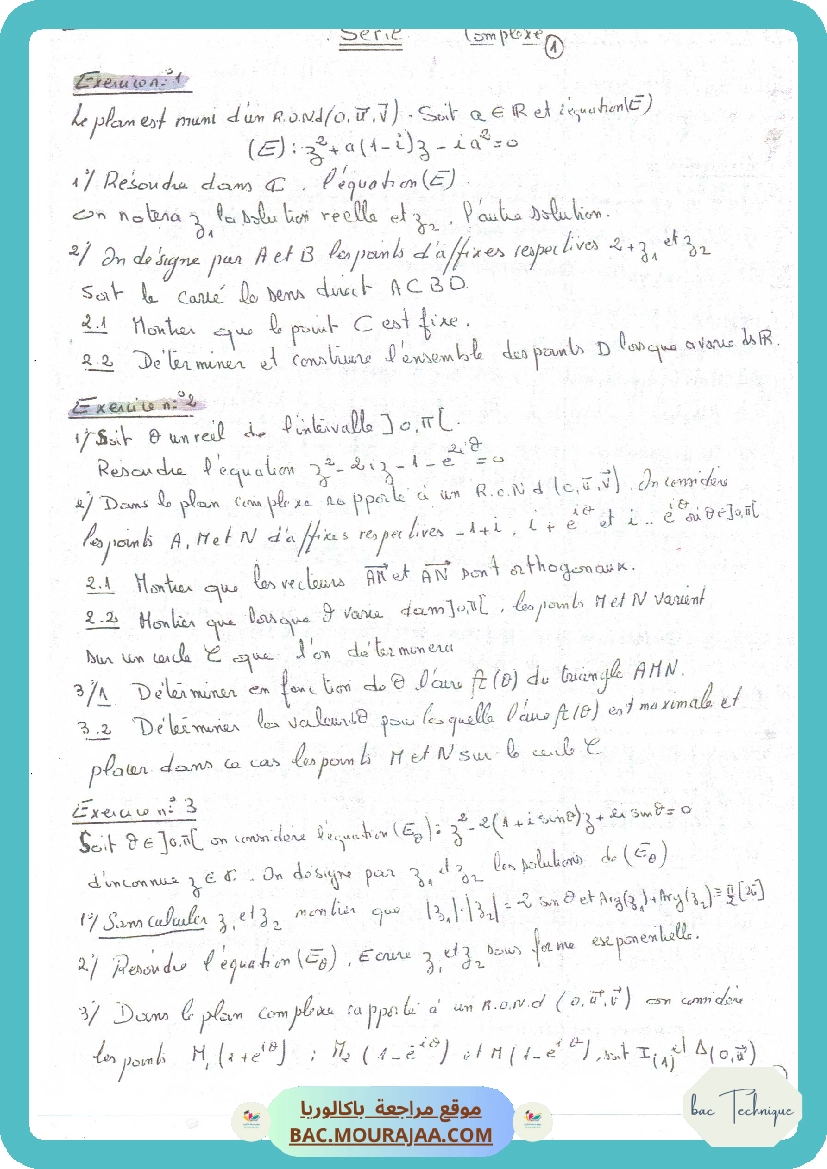 Série Complexe ①
Exercice n:°1
Le plan est muni d'un R.O.Nd(O, u⃗, v⃗). Soit a ∈ ℝ et l'équation(E)
(E): z² + a(1-i)z - ia² = 0
1°/ Résoudre dans ℂ, l'équation(E).
on notera z₁ la solution réelle et z₂, l'autre solution.
2°/ On désigne par A et B les points d'affixes respectives 2+z₁ et z₂
Soit le carré de sens direct ACBD.
2.1 Montrer que le point C est fixe.
2.2 Déterminer et construire l'ensemble des points D lorsque a varie ds ℝ.
Exercice n:°2
1°/ Soit θ un réel de l'intervalle ]0,π[.
Résoudre l'équation z² - 2iz - 1 - e^{2iθ} = 0
2°/ Dans le plan complexe rapporté à un R.O.N d (O, u⃗, v⃗). On considère
les points A, M et N d'affixes respectives -1+i, i + e^{iθ} et i - e^{iθ} où θ∈]0,π[
2.1 Montrer que les vecteurs AM⃗ et AN⃗ sont orthogonaux.
2.2 Montrer que lorsque θ varie dans ]0,π[, les points M et N varient
sur un cercle C que l'on déterminera
3°/1 Déterminer en fonction de θ l'aire A(θ) du triangle AMN.
3.2 Déterminer les valeurs θ pour lesquelle l'aire A(θ) est maximale et
placer dans ce cas les points M et N sur le cercle C
Exercice n:°3
Soit θ∈]0,π[ on considère l'équation (E_θ): z² - 2(1+i sinθ)z + 2i sinθ = 0
d'inconnue z ∈ ℂ. On désigne par z₁ et z₂ les solutions de (E_θ)
1°/ Sans calculer z₁ et z₂ montrer que |z₁|.|z₂| = 2 sin θ et Arg(z₁)+Arg(z₂) ≡ π/2 [2π]
2°/ Résoudre l'équation (E_θ), Ecrire z₁ et z₂ sous forme exponentielle.
3°/ Dans le plan complexe rapporté à un R.O.N.d (O, u⃗, v⃗) on considère
les points M₁(1+e^{iθ}) ; M₂(1-e^{-iθ}) et M(1-e^{iθ}), soit I(1) et Δ(O, u⃗)
موقع مراجعة باكالوريا
BAC.MOURAJAA.COM
bac Technique